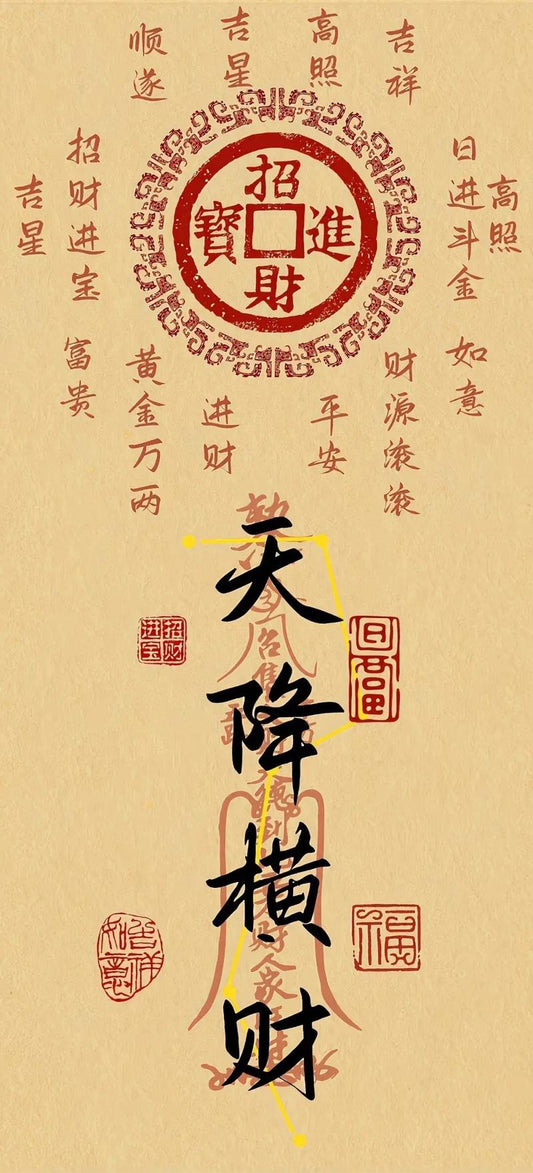 顺遂
吉星
高照
吉祥
吉星
招财进宝
日进斗金
高照
招財進寶
富贵
黄金万两
进财
平安
财源滚滚
如意
天降横财
招财进宝
日富
福
吉祥如意
召
财